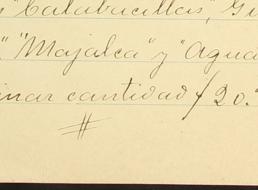 "Calabacillas", Gu
" "Majalca" y "Agua
inar cantidad $20.
#